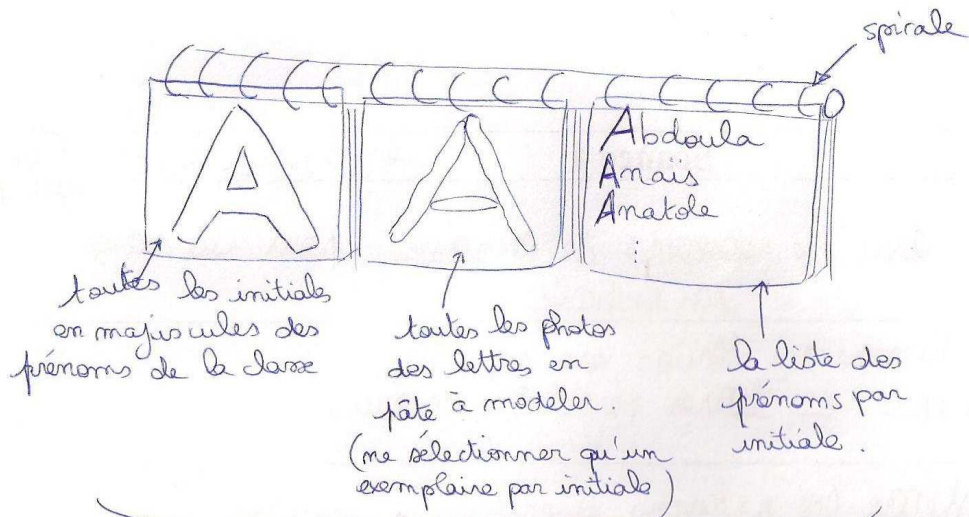 spirale
A
A
Abdoula
Anaïs
Anatole
⋮
toutes les initiales
en majuscules des
prénoms de la classe
toutes les photos
des lettres en
pâte à modeler.
(ne sélectionner qu'un
exemplaire par initiale)
la liste des
prénoms par
initiale.